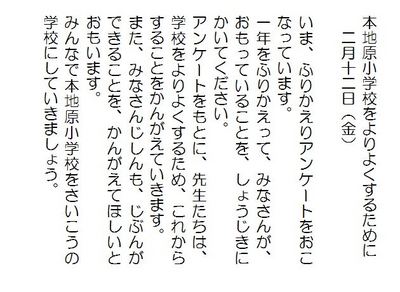 本地原小学校をよりよくするために
二月十二日（金）
いま、ふりかえりアンケートをおこ
なっています。
一年をふりかえって、みなさんが、
おもっていることを、しょうじきに
かいてください。
アンケートをもとに、先生たちは、
学校をよりよくするため、これから
することをかんがえていきます。
また、みなさんじしんも、じぶんが
できることを、かんがえてほしいと
おもいます。
みんなで本地原小学校をさいこうの
学校にしていきましょう。